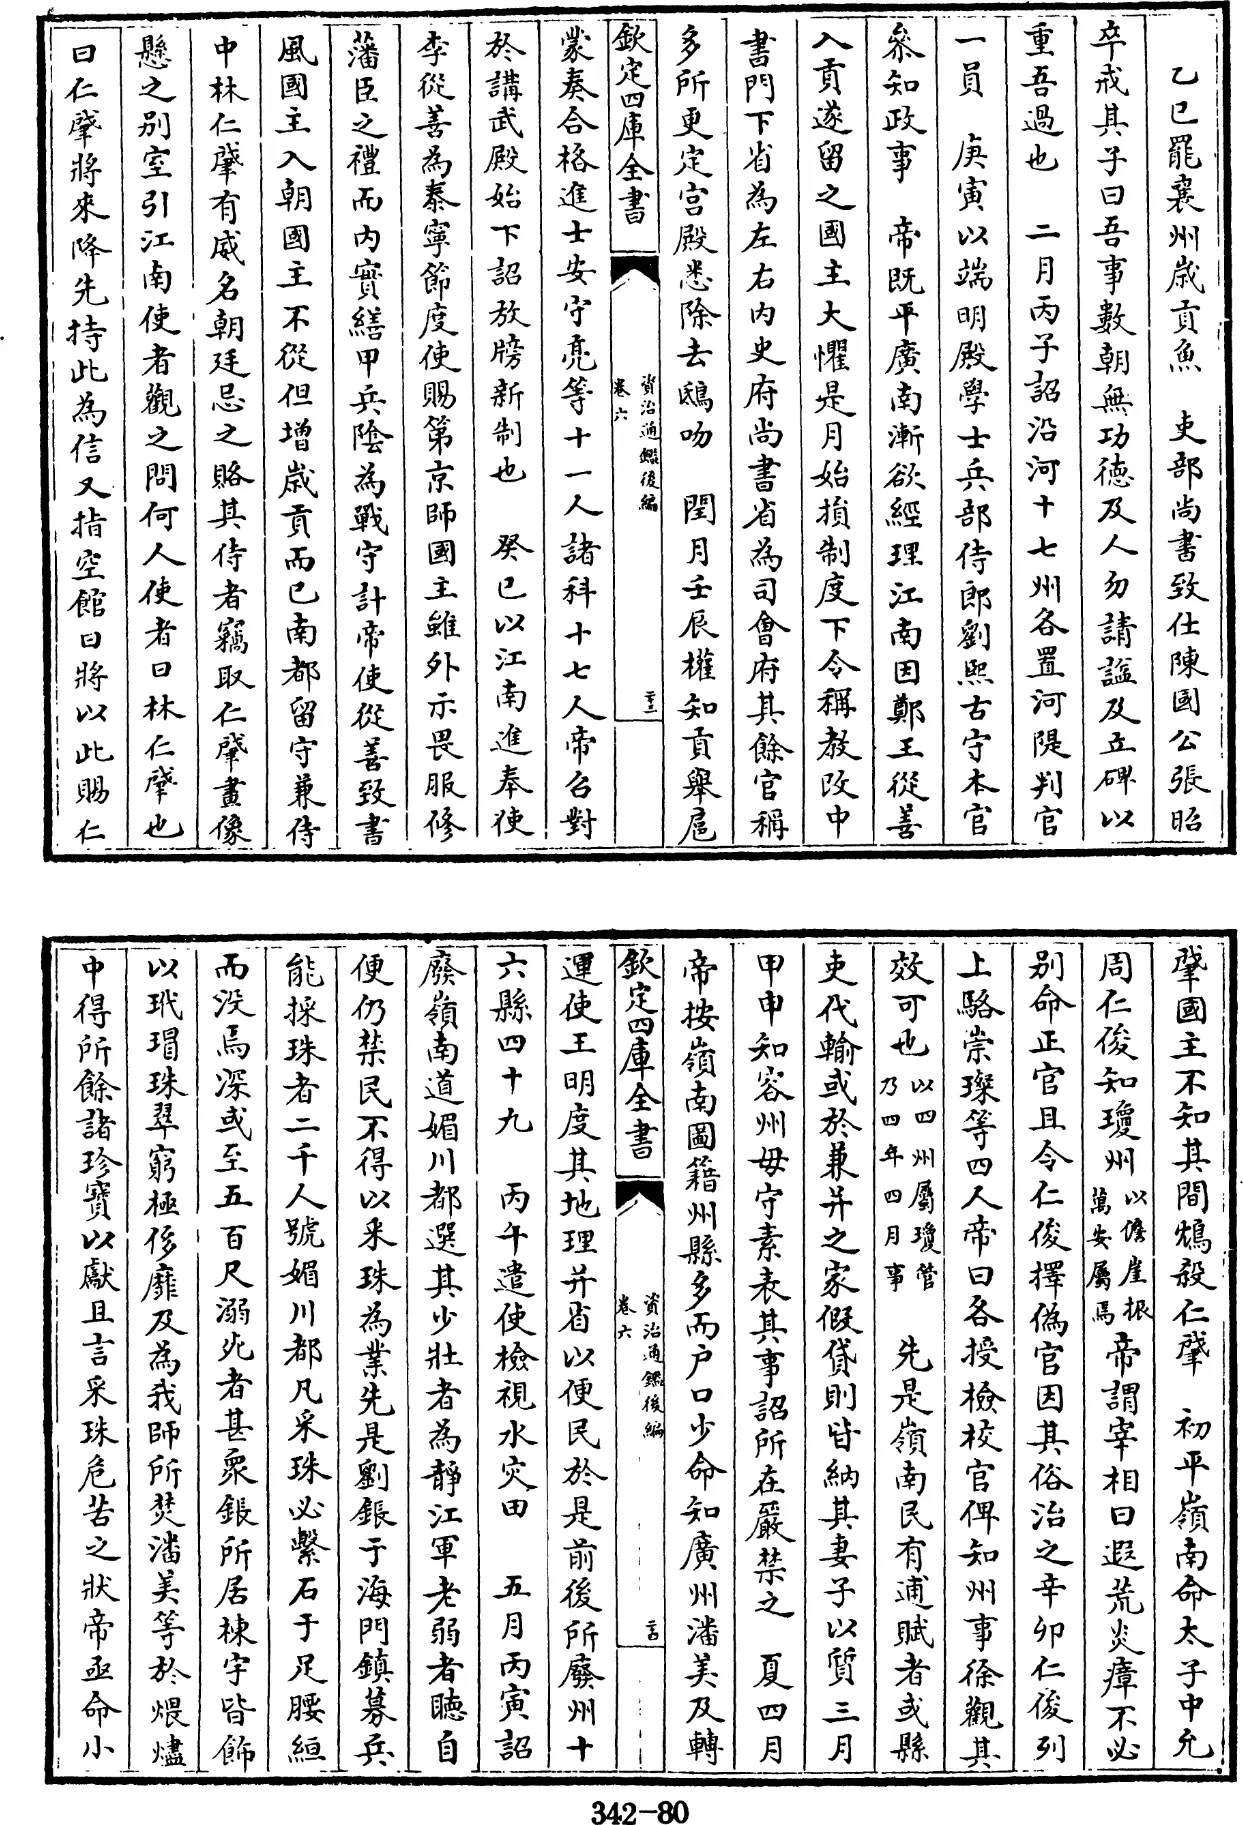 乙巳罷襄州歲貢魚　吏部尚書致仕陳國公張昭
卒戒其子曰吾事數朝無功徳及人勿請諡及立碑以
重吾過也　二月丙子詔沿河十七州各置河隄判官
一員　庚寅以端明殿學士兵部侍郎劉熙古守本官
叅知政事　帝既平廣南漸欲經理江南因鄭王從善
入貢遂留之國主大懼是月始損制度下令稱教改中
書門下省為左右内史府尚書省為司會府其餘官稱
多所更定宫殿悉除去鴟吻　閏月壬辰權知貢舉扈
欽定四庫全書
資治通鑑後編
卷六
二十三
蒙奏合格進士安守亮等十一人諸科十七人帝召對
於講武殿始下詔放牓新制也　癸巳以江南進奉使
李從善為泰寧節度使賜第京師國主雖外示畏服修
藩臣之禮而内實繕甲兵隂為戰守計帝使從善致書
風國主入朝國主不從但増歲貢而已南都留守兼侍
中林仁肇有威名朝廷忌之賂其侍者竊取仁肇畫像
懸之别室引江南使者觀之問何人使者曰林仁肇也
曰仁肇將來降先持此為信又指空館曰將以此賜仁
肇國主不知其間鴆殺仁肇　初平嶺南命太子中允
周仁俊知瓊州以儋崖振萬安屬焉帝謂宰相曰遐荒炎瘴不必
别命正官且令仁俊擇偽官因其俗治之辛卯仁俊列
上駱崇璨等四人帝曰各授檢校官俾知州事徐觀其
效可也以四州屬瓊管乃四年四月事　先是嶺南民有逋賦者或縣
吏代輸或於兼并之家假貸則皆納其妻子以質三月
甲申知容州毋守素表其事詔所在嚴禁之　夏四月
帝按嶺南圖籍州縣多而户口少命知廣州潘美及轉
欽定四庫全書
資治通鑑後編
卷六
二十四
運使王明度其地理并省以便民於是前後所廢州十
六縣四十九　丙午遣使檢視水灾田　五月丙寅詔
廢嶺南道媚川都選其少壯者為靜江軍老弱者聽自
便仍禁民不得以采珠為業先是劉鋹于海門鎮募兵
能採珠者二千人號媚川都凡采珠必縶石于足腰絙
而没焉深或至五百尺溺死者甚衆鋹所居棟宇皆飾
以玳瑁珠翠窮極侈靡及為我師所焚潘美等於煨燼
中得所餘諸珍寶以獻且言采珠危苦之狀帝亟命小
342-80